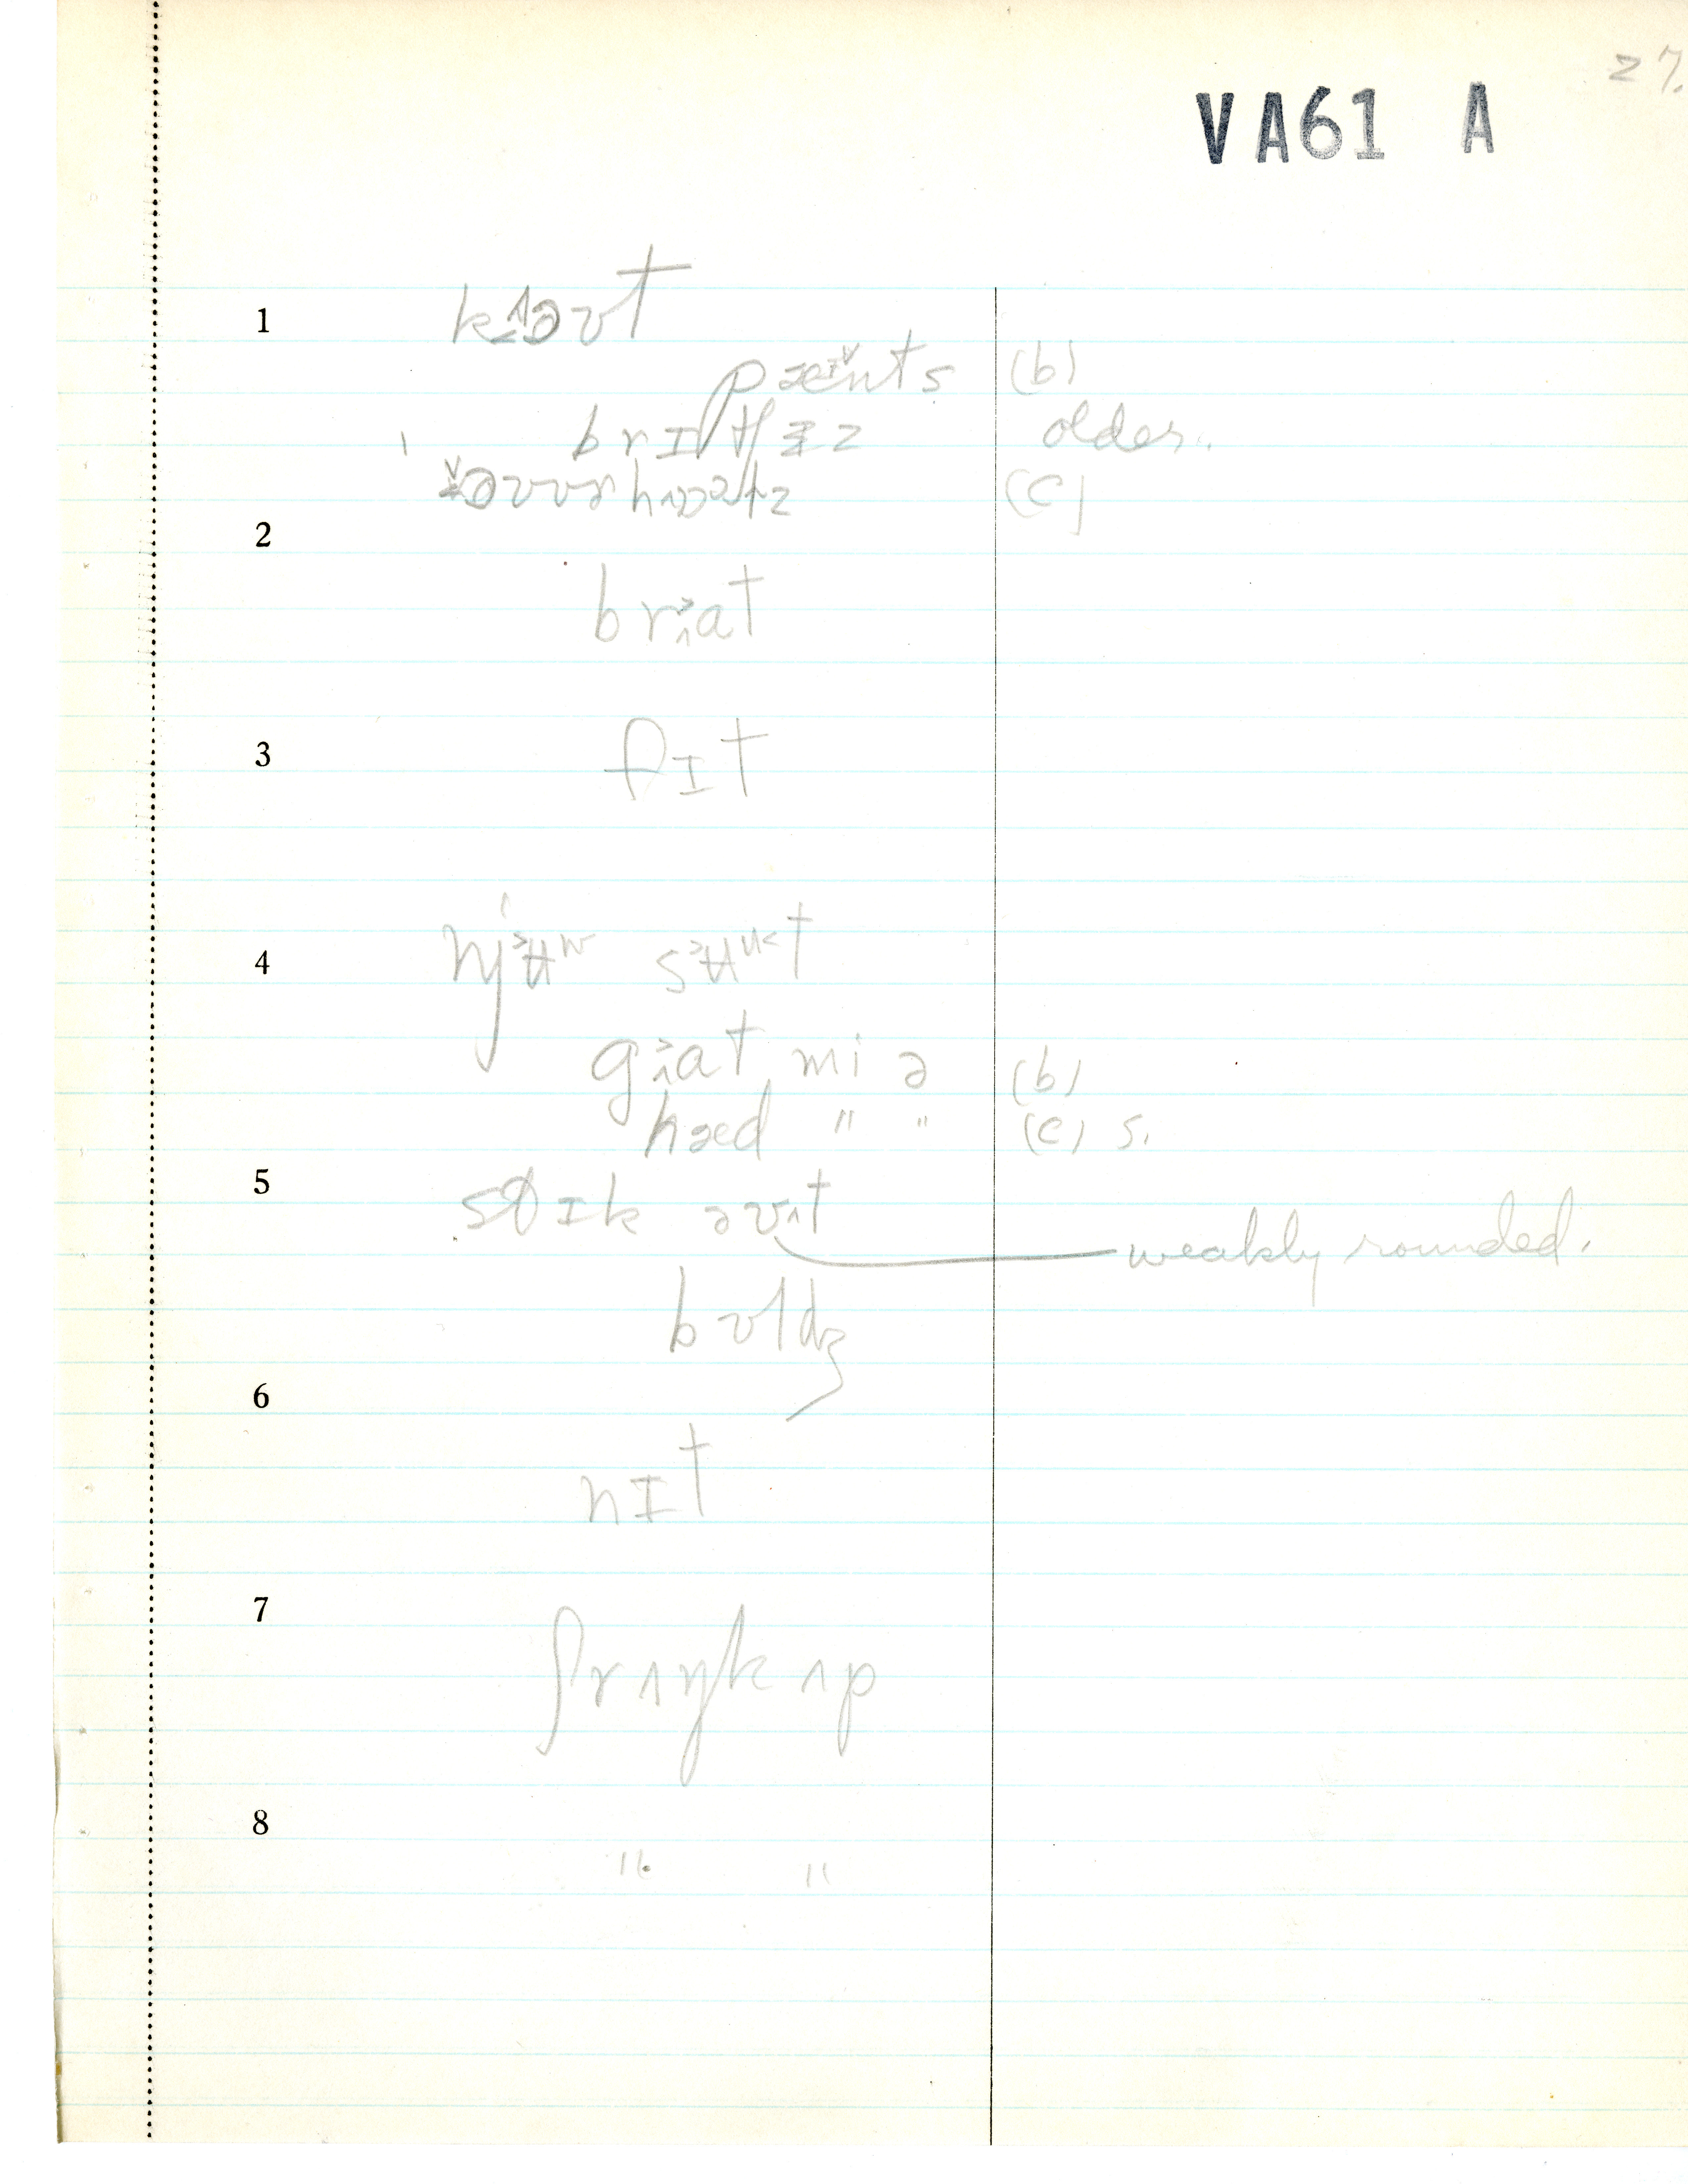 27.
VA61 A
1
pæɪnts (b)
brɪtʃɪz older.
(c)
2
brɜat
3
fɪt
4
njʉʷ sʉᵘt
gɜat mi ə (b)
hæd " " (c) s.
5
stɪk əʊt weakly rounded.
bʊldʒ
6
nɪt
7
ʃrʌŋk ʌp
8
" "